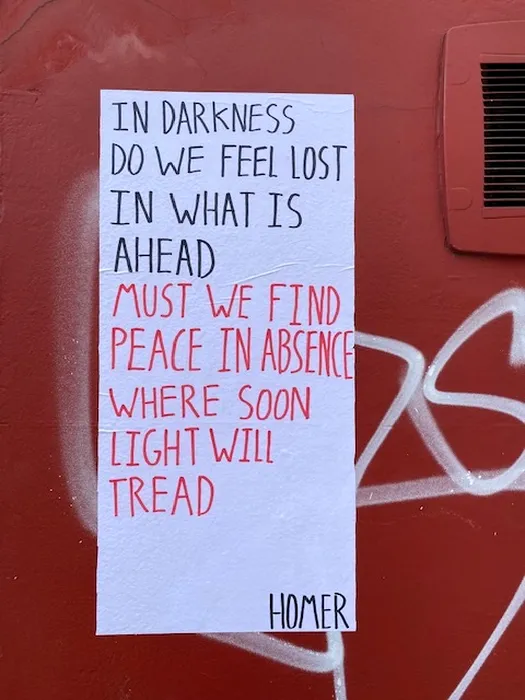 IN DARKNESS
DO WE FEEL LOST
IN WHAT IS
AHEAD
MUST WE FIND
PEACE IN ABSENCE
WHERE SOON
LIGHT WILL
TREAD
HOMER